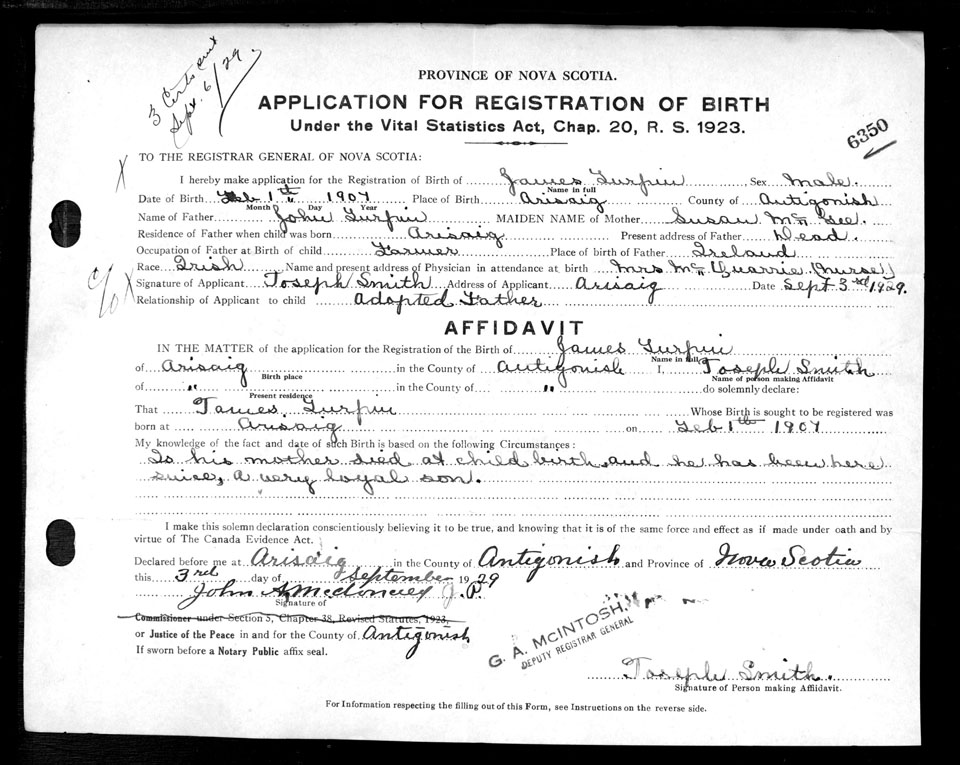 3 Certs sent
Sept. 6/29
PROVINCE OF NOVA SCOTIA.
APPLICATION FOR REGISTRATION OF BIRTH
Under the Vital Statistics Act, Chap. 20, R. S. 1923.
6350
X TO THE REGISTRAR GENERAL OF NOVA SCOTIA:
I hereby make application for the Registration of Birth of James Turpin Sex Male.
Name in full
Date of Birth Feb 1th 1907 Place of Birth Arisaig County of Antigonish
Month Day Year
Name of Father John Turpin MAIDEN NAME of Mother Susan McGee.
Residence of Father when child was born Arisaig Present address of Father Dead.
Occupation of Father at Birth of child Farmer Place of birth of Father Ireland
Race Irish Name and present address of Physician in attendance at birth Mrs McQuarrie (Nurse)
c/o X Signature of Applicant Joseph Smith Address of Applicant Arisaig Date Sept 3rd 1929.
Relationship of Applicant to child Adopted Father
AFFIDAVIT
IN THE MATTER of the application for the Registration of the Birth of James Turpin
Name in full
of Arisaig in the County of Antigonish I, Joseph Smith
Birth place Name of person making Affidavit
of " in the County of " do solemnly declare:
Present residence
That James Turpin Whose Birth is sought to be registered was
born at Arisaig on Feb 1th 1907
My knowledge of the fact and date of such Birth is based on the following Circumstances:
Is his mother died at child birth, and he has been here
since, a very loyal son.
I make this solemn declaration conscientiously believing it to be true, and knowing that it is of the same force and effect as if made under oath and by
virtue of The Canada Evidence Act.
Declared before me at Arisaig in the County of Antigonish and Province of Nova Scotia
this 3rd day of September 1929
John A McDonald J.P.
Signature of
Commissioner under Section 5, Chapter 38, Revised Statutes, 1923,
or Justice of the Peace in and for the County of Antigonish
If sworn before a Notary Public affix seal.
G. A. MCINTOSH.
DEPUTY REGISTRAR GENERAL
Joseph Smith.
Signature of Person making Affidavit.
For Information respecting the filling out of this Form, see Instructions on the reverse side.